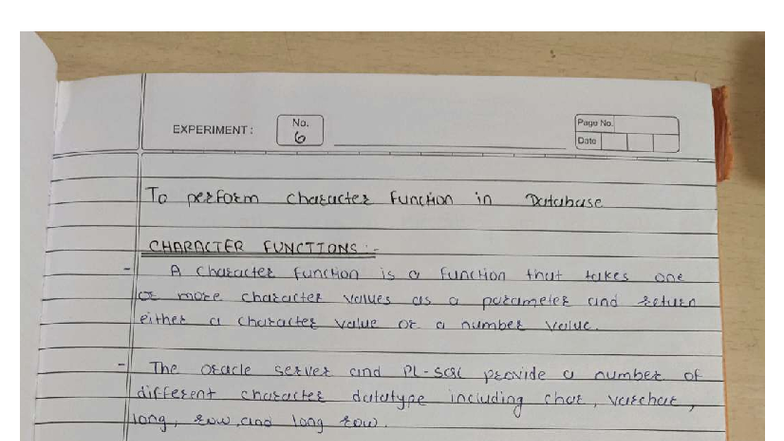 EXPERIMENT :
No.
6
Page No.
Date
To perform character function in Database
CHARACTER FUNCTIONS :-
- A character function is a function that takes one
or more character values as a parameter and return
either a character value or a number value.
- The oracle server and PL-SQL provide a number of
different character datatype including char, varchar,
long, raw, and long raw.